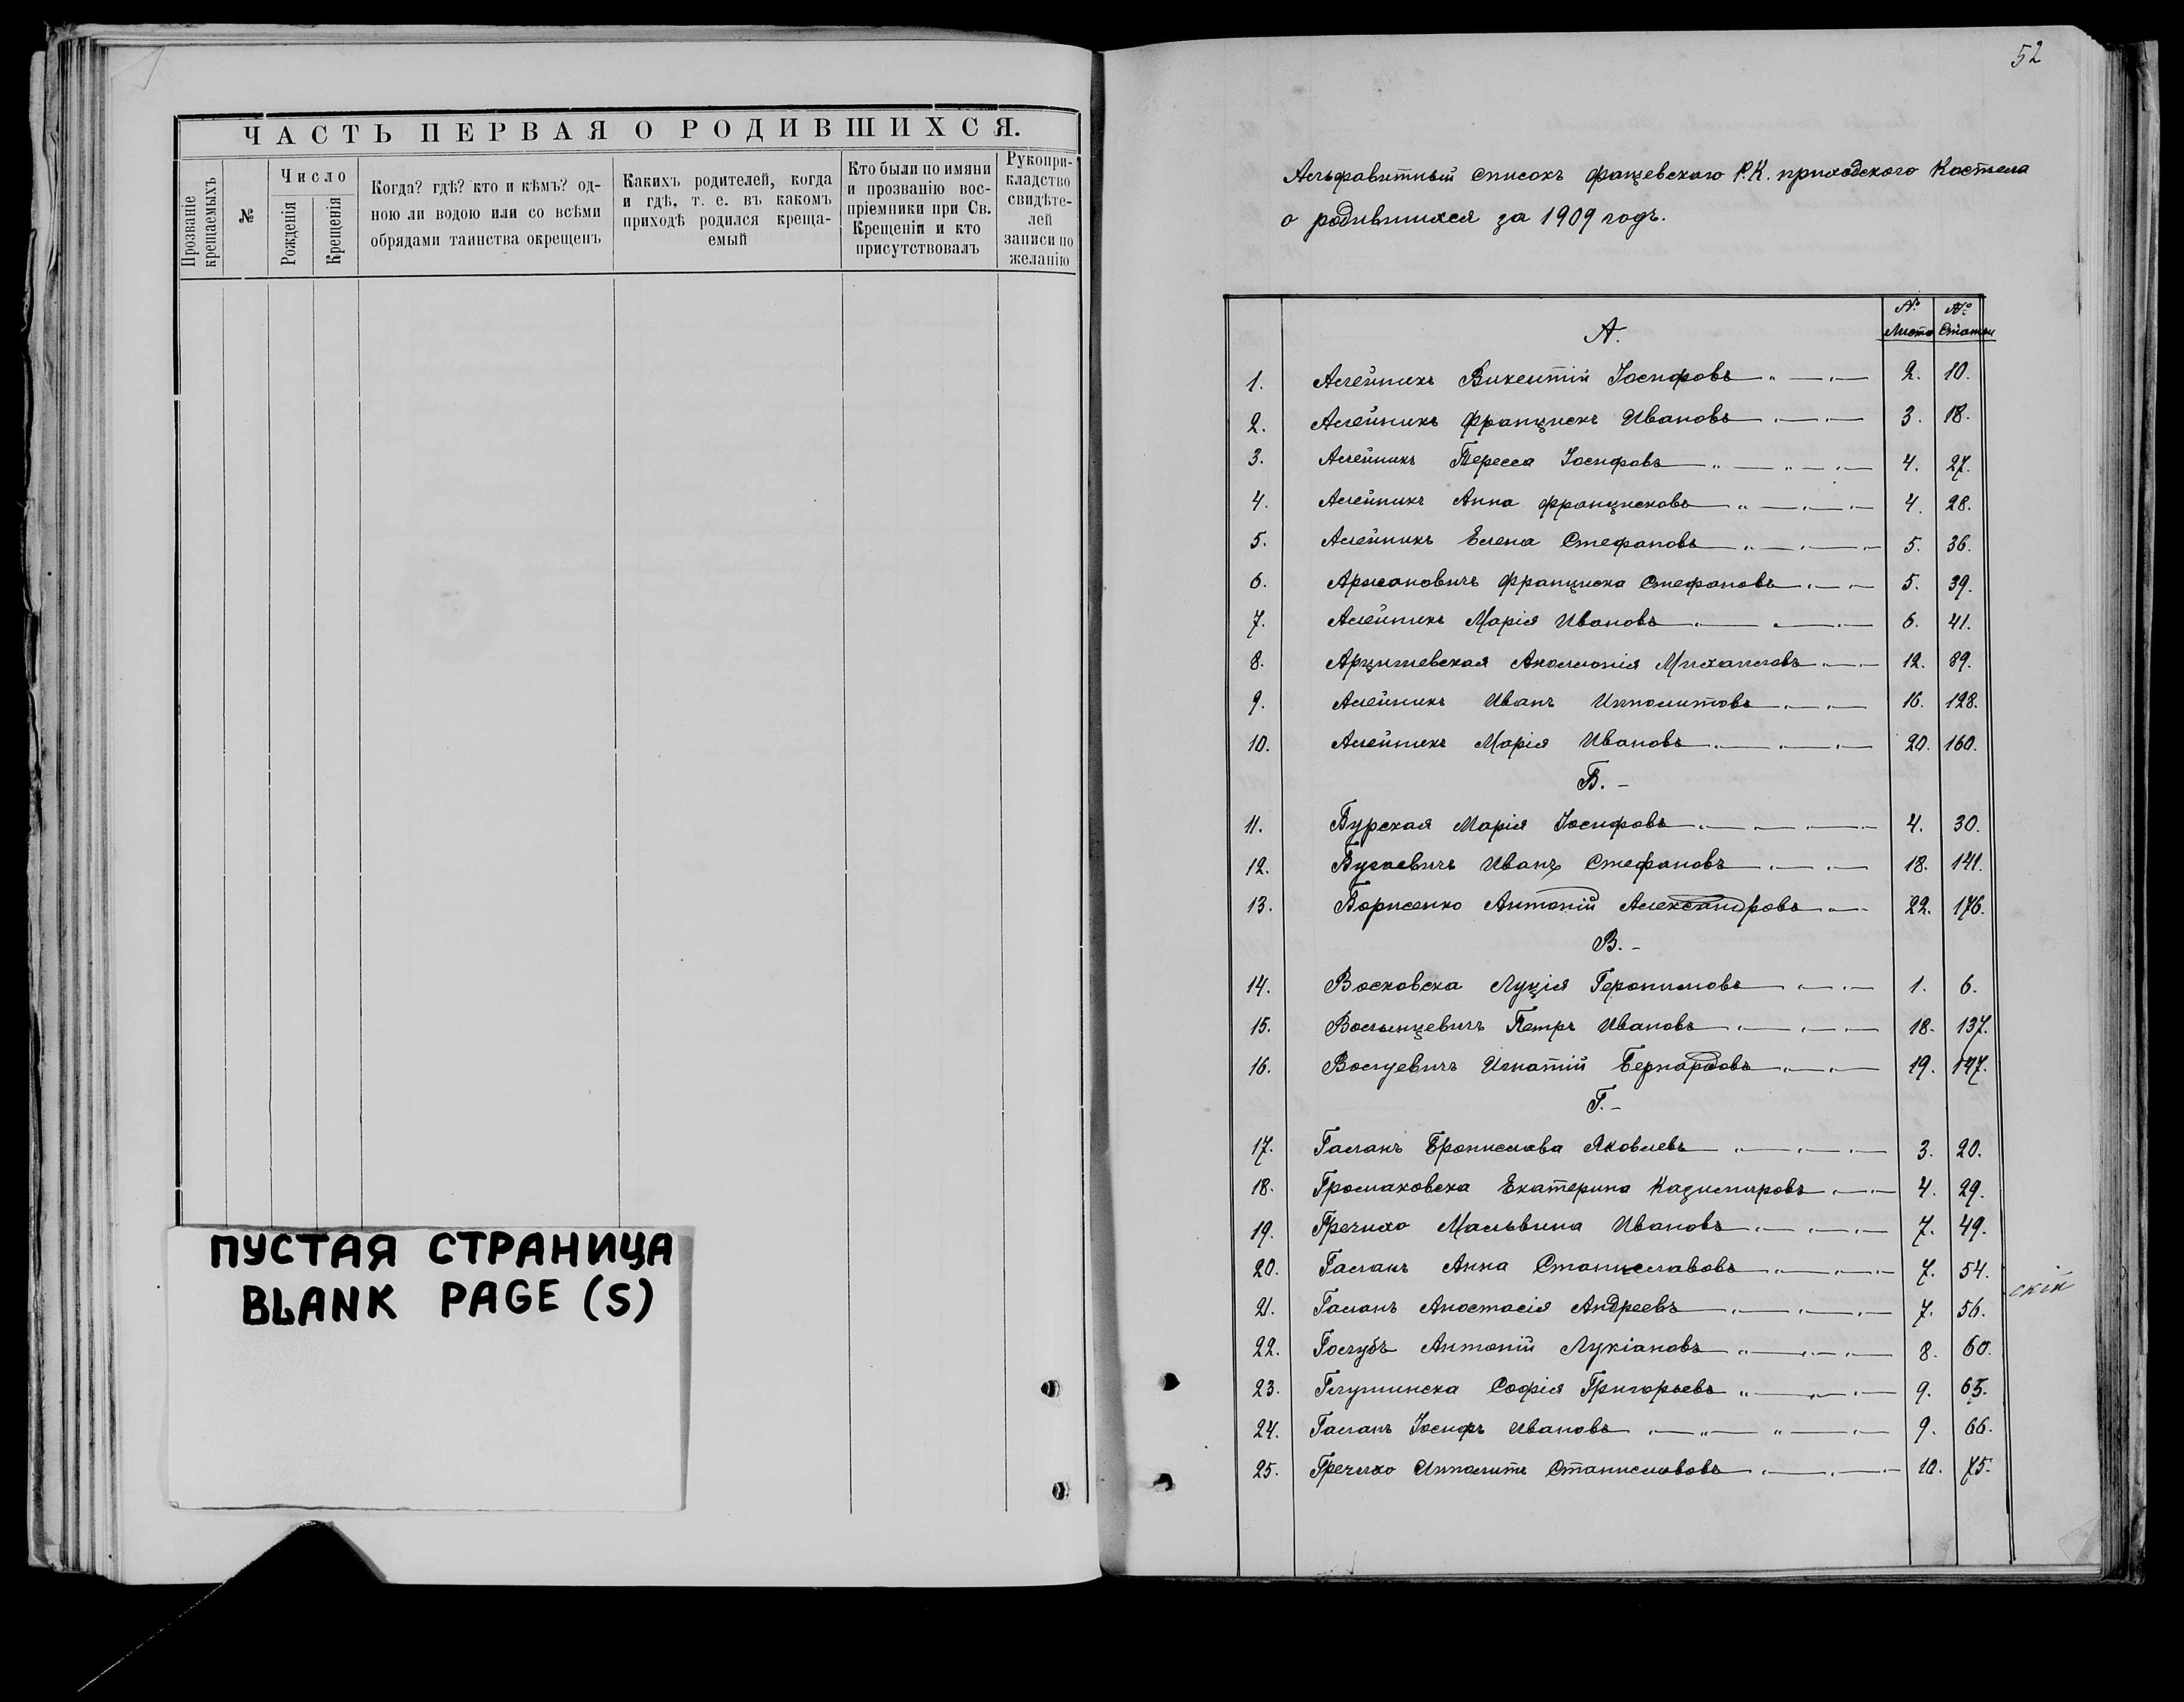 ЧАСТЬ ПЕРВАЯ О РОДИВШИХСЯ.
Прозваніе крещаемыхъ
№
Число
Рожденія
Крещенія
Когда? гдѣ? кто и кѣмъ? од-
ною ли водою или со всѣми
обрядами таинства окрещенъ
Какихъ родителей, когда
и гдѣ, т. е. въ какомъ
приходѣ родился креща-
емый
Кто были по имяни
и прозванію вос-
пріемники при Св.
Крещеніи и кто
присутствовалъ
Рукопри-
кладство
свидѣте-
лей
записи по
желанію
ПУСТАЯ СТРАНИЦА
BLANK PAGE (S)
52
Альфавитный списокъ фащевского Р.К. приходского Костела
о родившихся за 1909 годъ.
А. № Листа № Статьи
1. Алейникъ Викентій Іосифовъ 2. 10.
2. Алейникъ Францискъ Ивановъ 3. 18.
3. Алейникъ Тересса Іосифовъ 4. 27.
4. Алейникъ Анна Францисковъ 4. 28.
5. Алейникъ Елена Стефановъ 5. 36.
6. Армановичъ Франциска Стефановъ 5. 39.
7. Алейникъ Марія Ивановъ 6. 41.
8. Арцишевская Аполлонія Михаиловъ 12. 89.
9. Алейникъ Иванъ Ипполитовъ 16. 128.
10. Алейникъ Марія Ивановъ 20. 160.
Б.-
11. Бурская Марія Іосифовъ 4. 30.
12. Бугаевичъ Иванъ Стефановъ 18. 141.
13. Борисенко Антоній Александровъ 22. 176.
В.-
14. Восковска Луція Геронимовъ 1. 6.
15. Волынцевичъ Петръ Ивановъ 18. 137.
16. Игнатій Бернардовъ 19. 147.
Г.-
17. Галанъ Брониславa Яковлевъ 3. 20.
18. Громаковска Екатерина Казимировъ 4. 29.
19. Гречихо Мальвина Ивановъ 7. 49.
20. Галанъ Анна Станиславовъ 7. 54.
21. Галанъ Анастасія Андреевъ 7. 56.
скій
22. Голубъ Антоній Лукіановъ 8. 60.
23. Глушинска Софія Григорьевъ 9. 65.
24. Галанъ Іосифъ Ивановъ 9. 66.
25. Гречихо Ипполитъ Станиславовъ 10. 75.